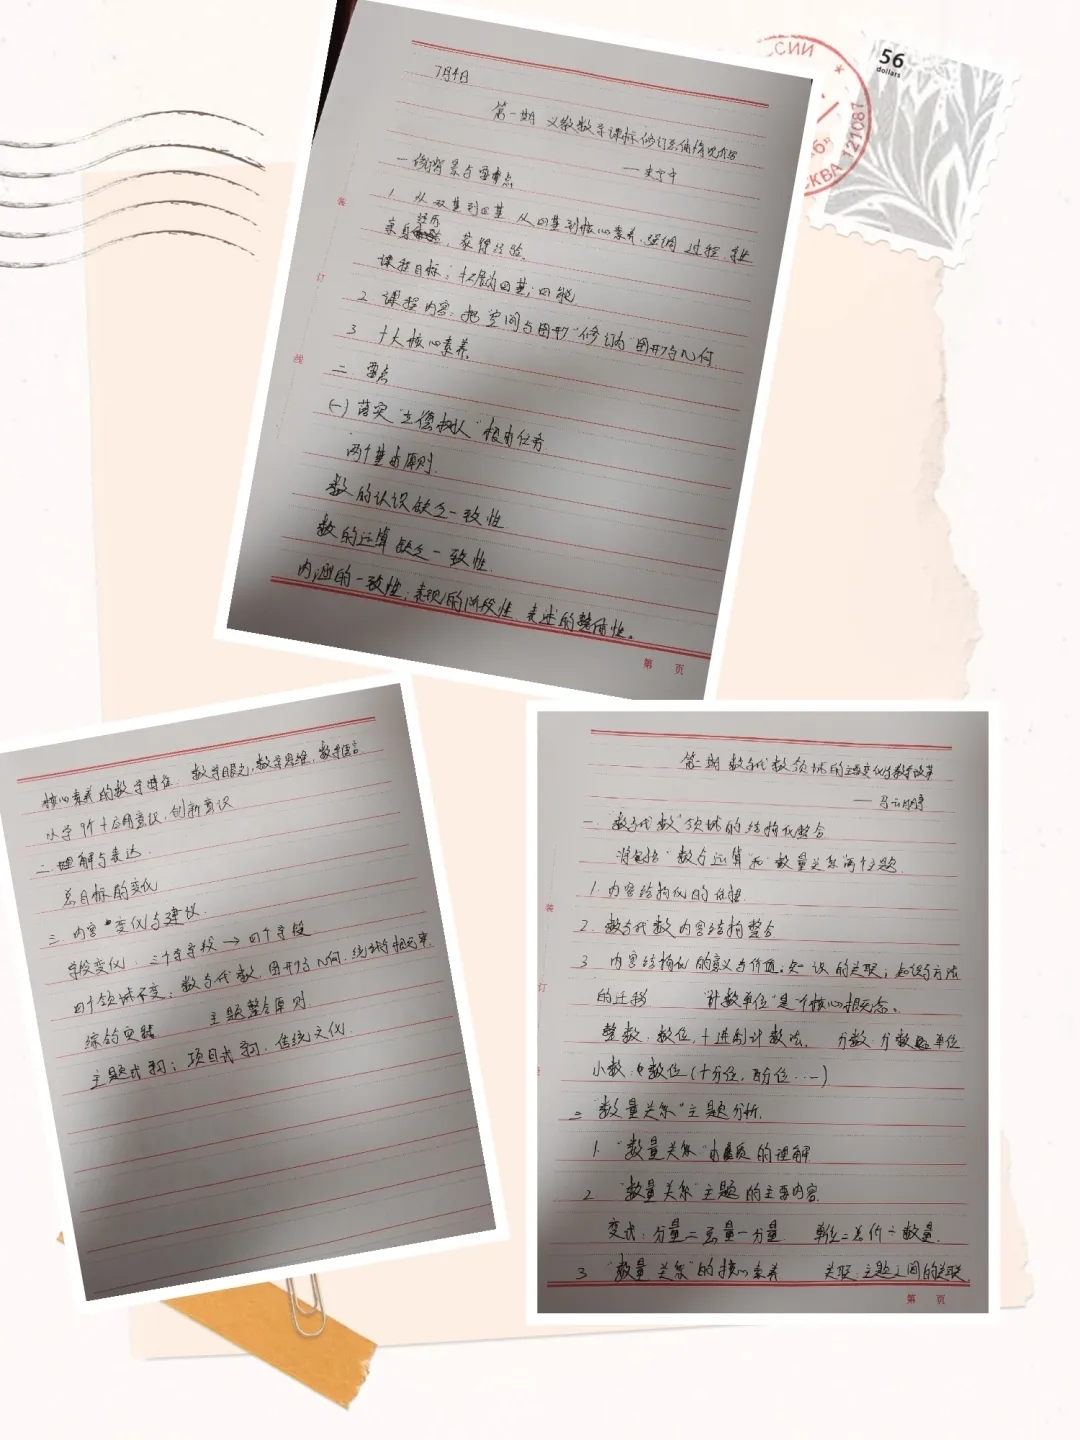 7月4日
第一期 义教数学课标修订总体情况介绍
——史宁中
一 修背景与要点
1. 从双基到四基,从四基到核心素养,强调过程,
亲身经历,获得经验。
课程目标:拓展为四基;四能
2 课程内容:把"空间与图形"修订为"图形与几何
3 十大核心素养。
二 要点
(一)落实"立德树人"根本任务
两个基本原则.
数的认识缺乏一致性
数的运算缺乏一致性.
内涵的一致性;表现的阶段性 表述的整体性。
装
订
线
第 页
核心素养的数学特征:数学眼光,数学思维,数学语言
小学9个+应用意识,创新意识
二.理解与表达.
总目标的变化
三.内容变化与建议.
学段变化:三个学段→四个学段
四个领域不变:数与代数,图形与几何,统计与概率.
综合实践 主题整合原则
主题式学习;项目式学习,传统文化.
第二期 数与代数领域的主题变化与教学改革
——马云鹏
一."数与代数"领域的结构化整合
"数与运算"和"数量关系"两个主题.
1.内容结构化的依据
2.数与代数内容结构整合
3 内容结构化的意义与价值。知识的关联;知识与方法
的迁移 "计数单位"是个核心概念。
整数:数位,十进制计数法. 分数:分数单位
小数:数位(十分位,百分位……)
二"数量关系"主题分析.
1."数量关系"内容本质的理解
2 "数量关系"主题的主要内容.
变式:分量=总量-分量 单价=总价÷数量.
3 "数量关系"的核心素养 关联:主题之间的关联.
装
订
第 页
56
dollars
121087